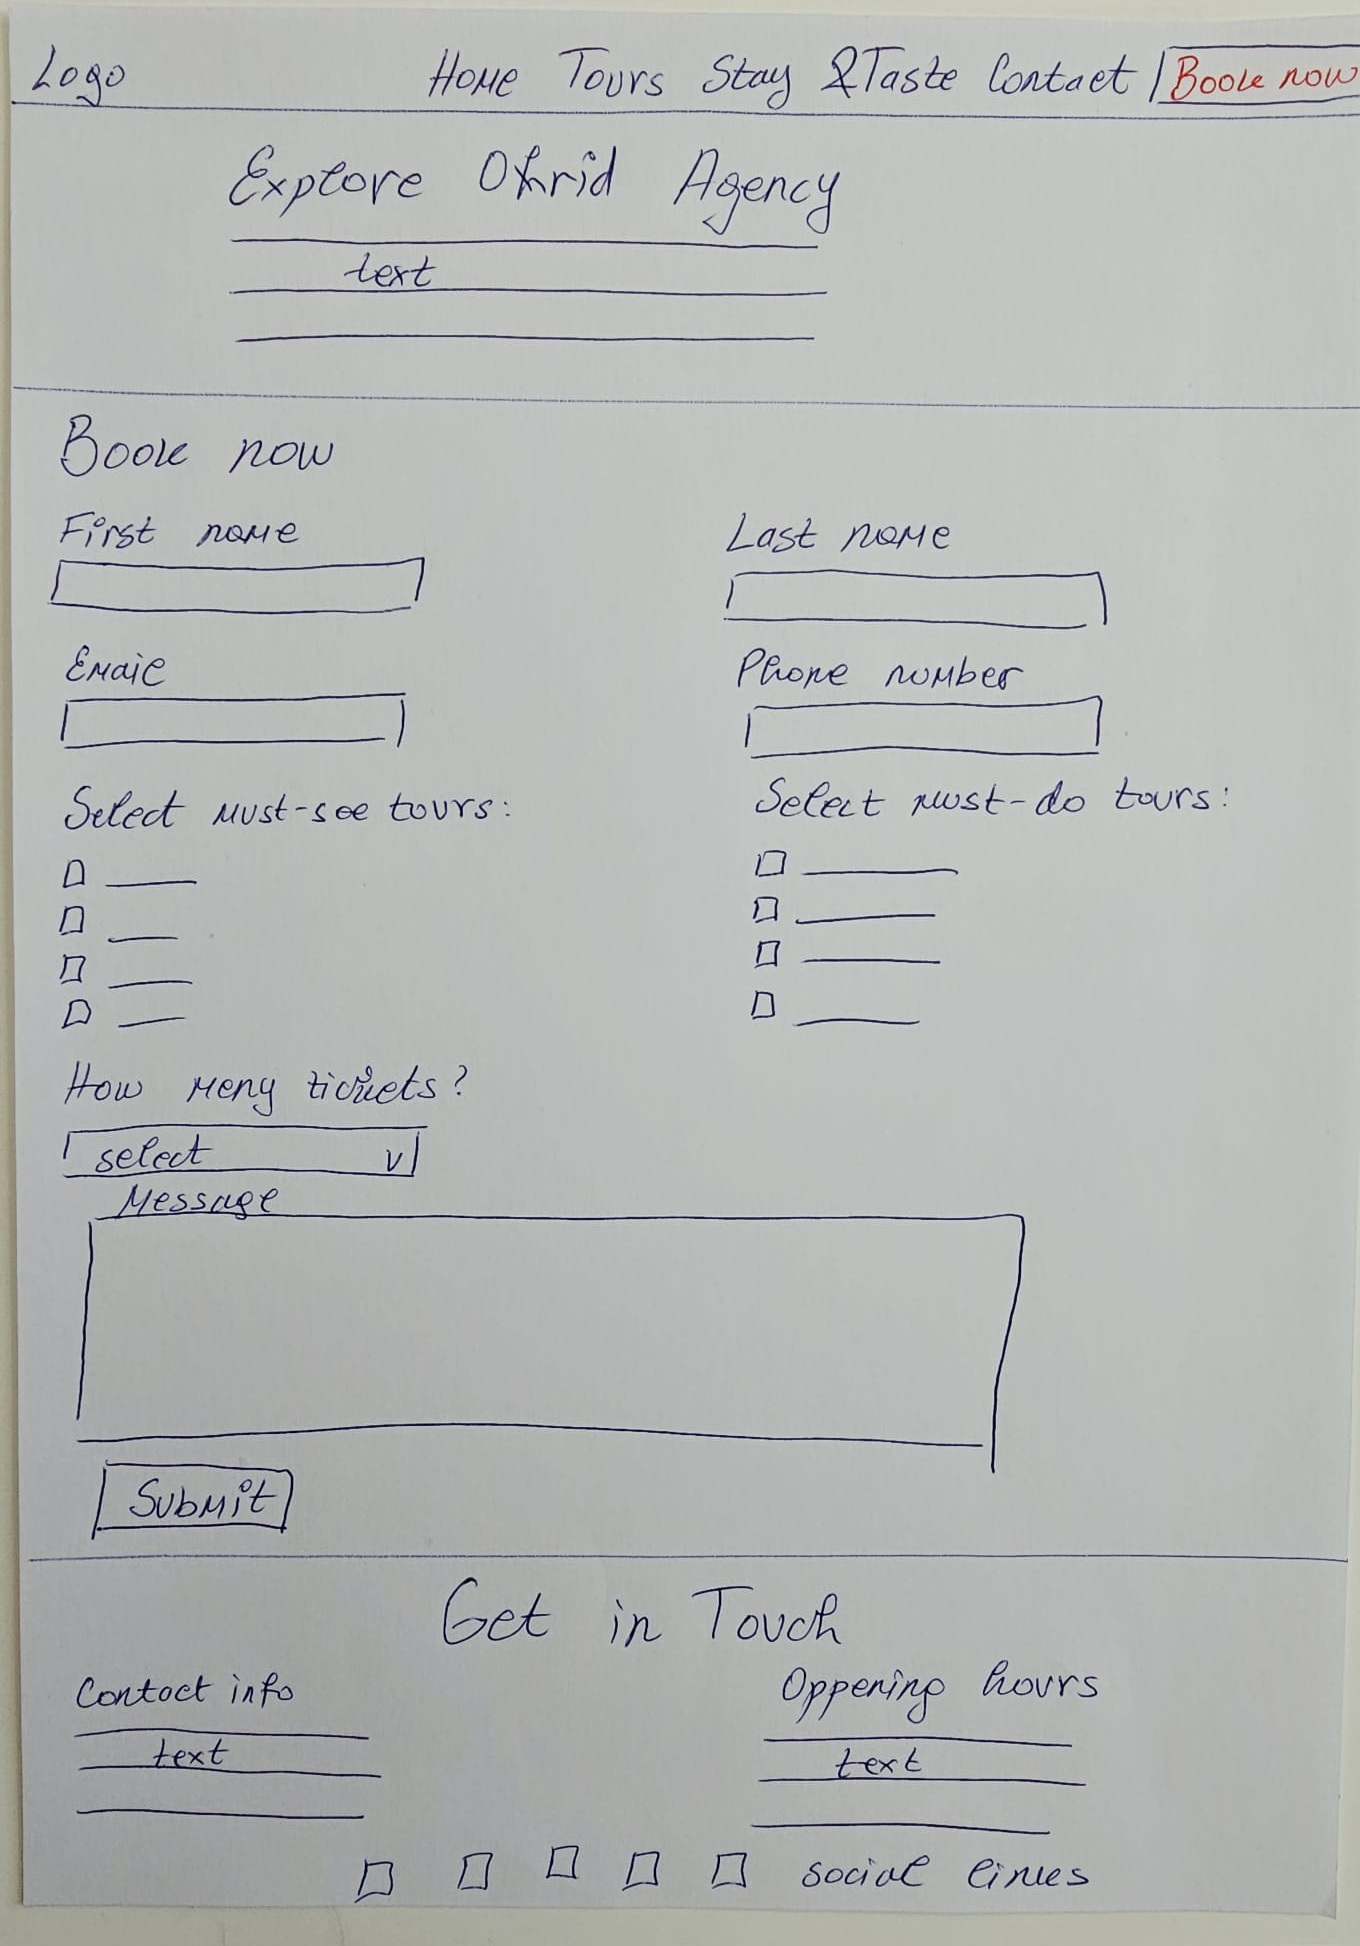 Logo Home Tours Stay &Taste Contact | Book now
Explore Ohrid Agency
text
Book now
First name Last name
Email Phone number
Select must-see tours: Select must-do tours:
How meny tickets?
select v
Message
Submit
Get in Touch
Contact info Oppening hours
text text
social links